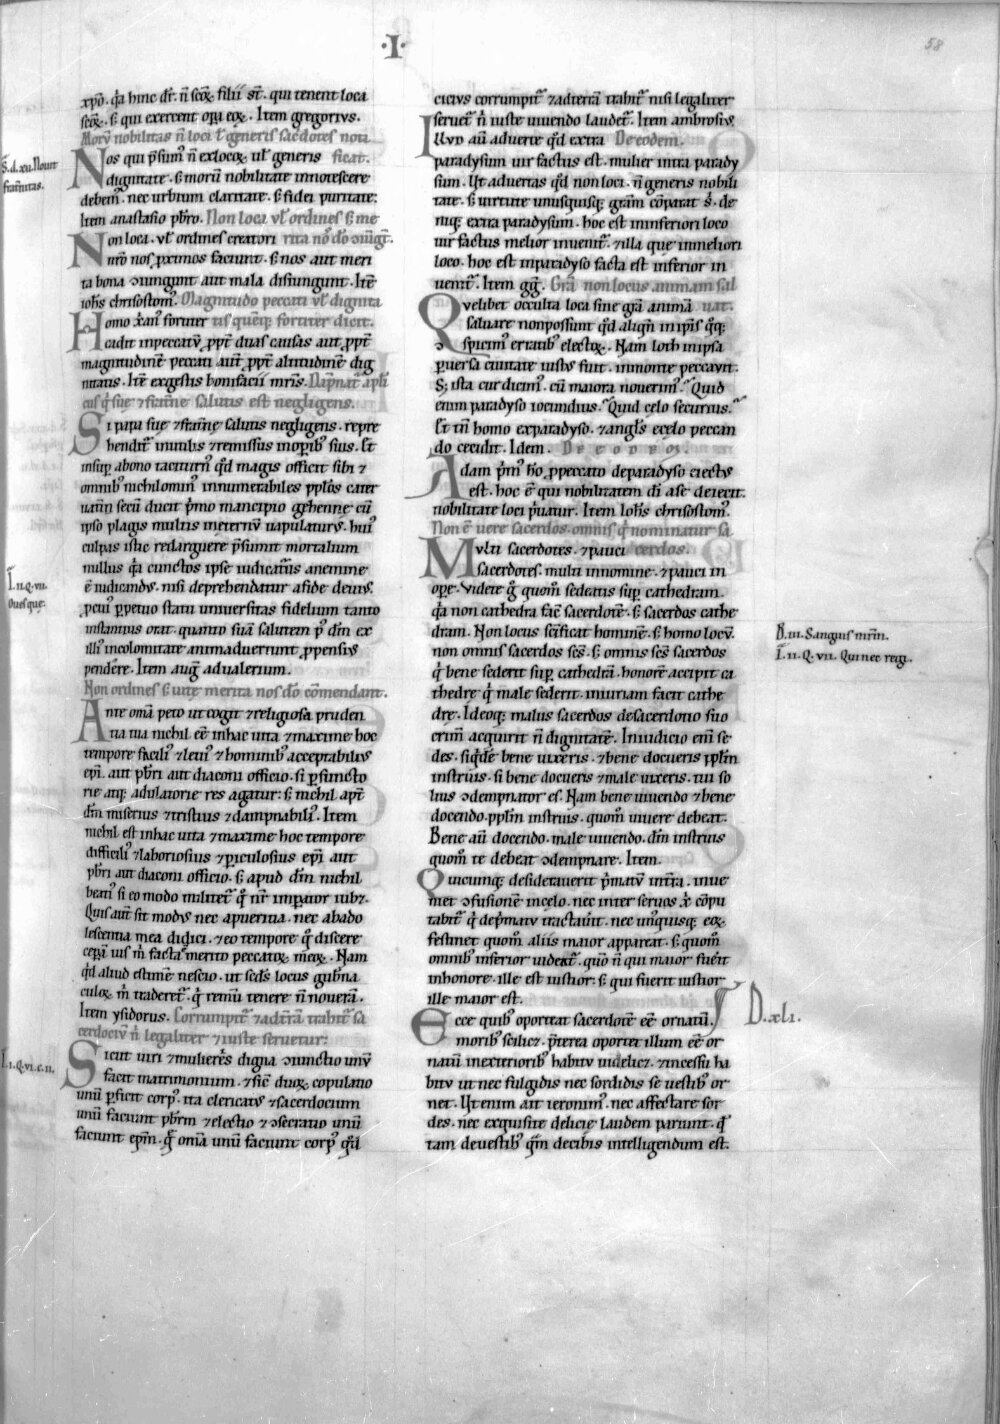 ·I·
58
xpo. qa hinc dr. n scor filii st. qui tenent loca
scor. s; qui exercent opa eor. Item gregorius.
Morum nobilitas n loci ul generis sacdotes nota
Nos qui psumus n ex locor ul generis ficat.
dignitate. s; morum nobilitate innotescere
debem. nec urbium claritate. s; fidei puritate:
Item anastasio pbro. Non loca ul ordines s; me
Non loca. ul ordines creatori rita nos do
nro nos proximos faciunt. s; nos aut meri
ta bona ɔiungunt aut mala disiungunt. Ite
iohs chrisostom. Magnitudo peccati ul dignita
Homo xan fortiter tis queq fortiter dicit.
cadit in peccatu. ppt duas causas aut. ppt
magnitudine peccati aut. ppt altitudine dig
nitatis. Ite ex gestis bonifacii mris. Dapnat apli
cus q sue & fratne salutis est negligens.
Si papa sue & fratne salutis negligens. repre
hendit inutilis & remissus in opib suis. Et
insup a bono taciturn qd magis officit sibi &
omnib nichilomin innumerabiles pplos cater
uatim secu ducit pmo mancipio gehenne cu
ipso plagis multis in eternu uapulaturus. hui
culpas istic redarguere psumit mortalium
nullus qa cunctos ipse iudicaturus a nemine
e iudicandus. nisi deprehendatur a fide deuius.
pcui ppetuo statu uniuersitas fidelium tanto
instantius orat. quanto sua salutem p dm ex
illi incolomitate animaduertunt ppensius
pendere. Item aug ad ualerium.
Non ordines s; uite merita nos do comendant.
Ante oma peto ut cogit & religiosa pruden
tia tua nichil ee in hac uita & maxime hoc
tempore facili & leui & hominib acceptabilius
epi. aut pbri aut diaconi officio. si p functo
rie atq; adulatorie res agatur: s; nichil apt
dm miserius & tristius & dampnabili. Item
nichil est in hac uita & maxime hoc tempore
difficili & laboriosius & piculosius epi aut
pbri aut diaconi officio. s; apud dm nichil
beati si eo modo militet q nr impator iubz.
Quis aut sit modus nec a pueritia. nec ab ado
lescentia mea didici. & eo tempore q discere
cepa uis m facta merito peccator meor. Nam
qd aliud estime nescio. ut scds locus gubna
culor m traderet. q remu tenere n noueram.
Item ysidorus. Corrumpit & ad tra trahit sa
cerdociu n legaliter & iuste seruetur:
Sicut uiri & mulieris digna ɔiunctio unu
facit matrimonium. & sic duor copulatio
unu pficit corp. ita clericatus & sacerdocium
unu faciunt pbrm & electio & ɔsecratio unu
faciunt epm. q oma unu faciunt corp qd
S. d. xii. Nouit
fratnitas.
I. ii. q. vii.
Oues que.
I. i. q. vi. c. ii.
cicius corrumpit & ad terra trahit nisi legaliter
seruet & n iuste uiuendo laudet. Item ambrosius
Illud au aduerte qd extra De eodem.
paradysum uir factus est. mulier intra parady
sum. Ut aduertas qd non loci. n generis nobili
tate. s; uirtute unusquisq gram comparat s. de
niq; extra paradysum. hoc est in inferiori loco
uir factus melior inuenit. & illa que in meliori
loco. hoc est in paradyso facta est inferior in
uenit. Item gg. Gra non locus animam sal
Quelibet occulta loca sine gra anima uat.
saluare non possunt qd aliqn in ipsis qq;
ɔspicim erratib elector. Nam loth in ipsa
puersa ciuitate iustus fuit. in monte peccauit.
S; ista cur dicim. cu maiora nouerim. Quid
enim paradyso iocundius. Quid celo securius.
Et tn homo ex paradyso. & angls e celo peccan
do cecidit. Idem. De eodem.
Adam pm ho p peccato de paradyso eiectus
est. hoc e qui nobilitatem di a se deiecit.
nobilitate loci puatur. Item Iohs chrisostom.
Non e uere sacerdos. omnis q nominatur sa
Multi sacerdotes. & pauci cerdos.
sacerdotes. multi in nomine. & pauci in
ope. Videte g quom sedeatis sup cathedram.
qa non cathedra fac sacerdote. s; sacerdos cathe
dram. Non locus scificat homine. s; homo locu.
non omnis sacerdos scs. s; omnis scs sacerdos
q bene sederit sup cathedra. honore accipit ca
thedre q male sederit. iniuriam facit cathe
dre. Ideoq; malus sacerdos de sacerdotio suo
crim acquirit n dignitate. In iudicio eni se
des. siqde bene uixeris. & bene docueris pplm
instruis. si bene docueris & male uixeris. tui so
lius ɔdempnator es. Nam bene uiuendo & bene
docendo. pplm instruis. quom uiuere debeat.
Bene au docendo. male uiuendo. dm instruis
quom te debeat ɔdempnare. Item.
Quicunq; desiderauerit pmatu in terra. inue
niet ɔfusionem in celo. nec inter seruos x compu
tabit q de pmatu tractauit. nec unusquisq; eor
festinet quom aliis maior appareat. s; quom
omnib inferior uideat. quo n qui maior fuerit
in honore. ille est iustior. s; qui fuerit iustior
ille maior est.
Ecce quib oporteat sacerdote ee ornatu.
morib scilicz. pterea oportet illum ee or
natu in exteriorib habitu uidelicz & incessu ha
bitu ut nec fulgidis nec sordidis se uestib or
net. Ut enim ait ieronim. nec affectate sor
des. nec exquisite delicie laudem pariunt. q
tam de uestib qm de cibis intelligendum est.
B. iii. Sanguis mrm.
I. ii. Q. vii. Qui nec regi.
D. xli.